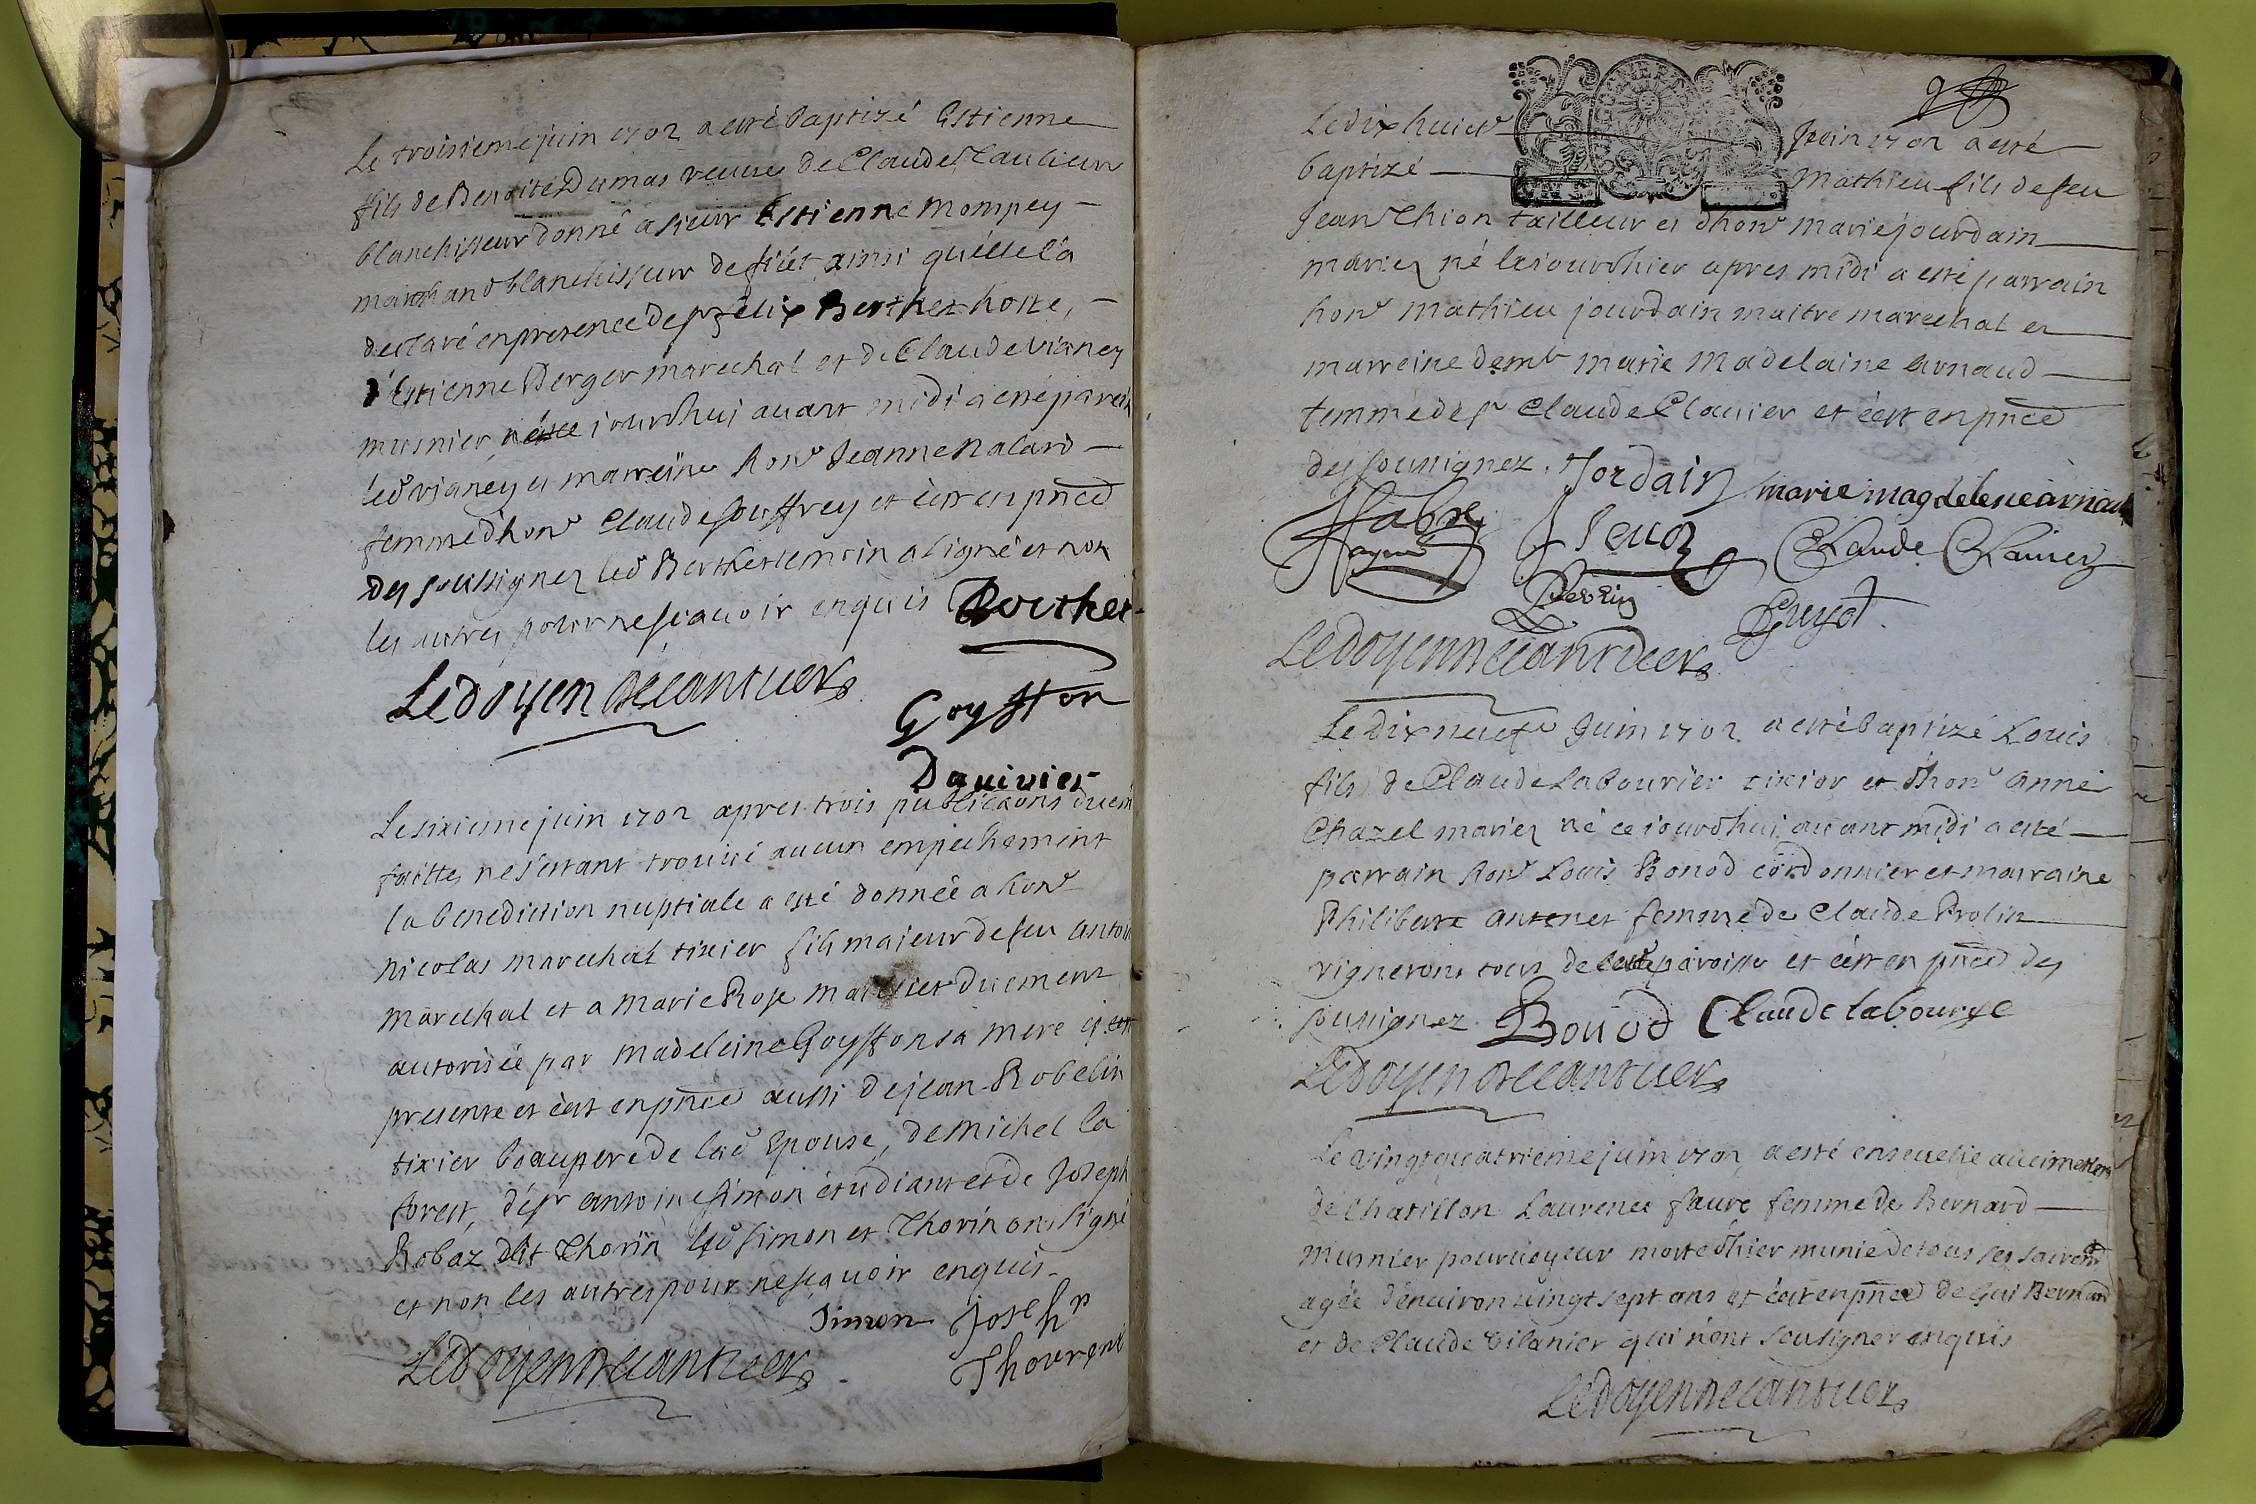 Le troisieme juin 1702 a esté baptizé Estienne
fils de Benoite Dumas veuve de Claude
blanchisseur donné a sieur Estienne Mompey
marchand blanchisseur de filet ainsi quelle la
declaré en presence de sr felix Berthet hoste,
d'Estienne Berger marechal et de Claude vianey
musnier, né jourdhui avant midi a esté parein
led vianey et marreine hone Jeanne Nalard
femme dhone Claude Souffrey et cest en pnce
des soussignez led Berthet temoin a signé et non
les autres pour ne scavoir enquis Berthet
Le doyen Decantuers
Goyffon
Dauivier
Le sixieme juin 1702 apres trois publicaons duem
faittes ne sestant trouvé aucun empechement
la benediction nuptiale a esté donnée a hone
nicolas marechal tixier fils majeur de feu antoi
marechal et a marie Rose duement
autorisée par madeleine Goyffon sa mere cy
presente et cest en pnce aussi de jean Robelin
tixier beaupere de lad Epouse, de Michel la
forest, de sr antoine Simon étudiant et de Joseph
Robaz dit Thorin led Simon et Thorin ont signé
et non les autres pour ne scavoir enquis
Simon Joseph
Thouren
Le doyen Decantuers
Le dix huict Juin 1702 a esté
baptizé Mathieu fils de feu
Jean Chion tailleur et dhone marie jourdain
mariez né le jourdhier apres midi a esté parrain
hone mathieu jourdain maitre marechal et
marreine demle marie Madelaine arnaud
femme de sr Claude Clavier et cest en pnce
des soussignez. Jordain marie magdelene arnaud
Fabre Claude Clauier
Perrin Guyot
Le doyen Decantuers
Le dix neufe Juin 1702 a esté baptizé Louis
fils de Claude Labourier tixier et dhone anne
Chazel mariez né ce jourdhui avant midi a esté
parrain hone Louis Bonod cordonnier et marraine
Philiberte antenet femme de Claude Prolin
vignerons tous de parroisse et cest en pnce des
soussignez Bonod Claude labourye
Le doyen Decantuers
Le vingt quatrieme juin 1702 a esté ensevelie au cimetiere
de Chatillon Laurence faure femme de Bernard
musnier pourvoyeur morte dhier munie de tous ses sacremt
agée d'environ vingt sept ans et cest en pnce de Bernard
et de Claude vilanier qui n'ont sceu signer enquis
Le doyen Decantuers